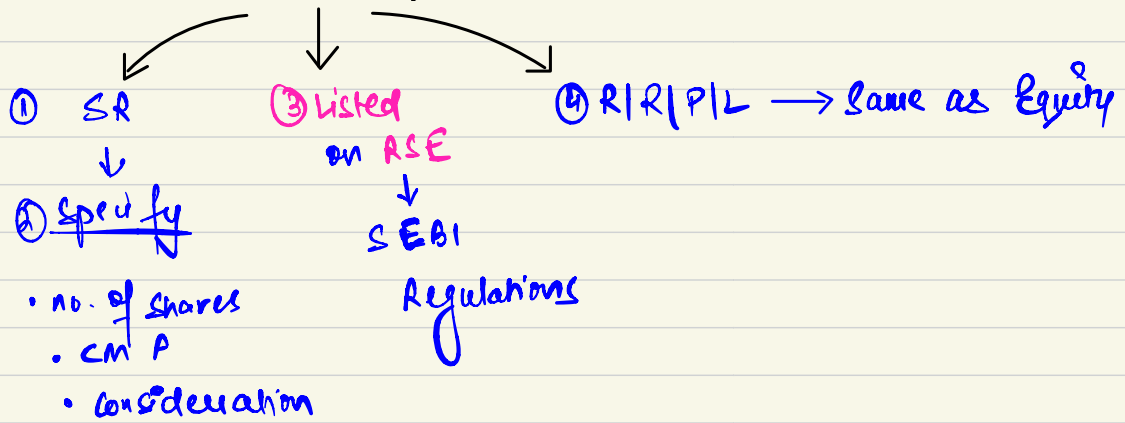 ① SR
↓
② Specify
• no. of shares
• CMP
• consideration
③ Listed
on RSE
↓
SEBI
Regulations
④ R|R|P|L → Same as Equity